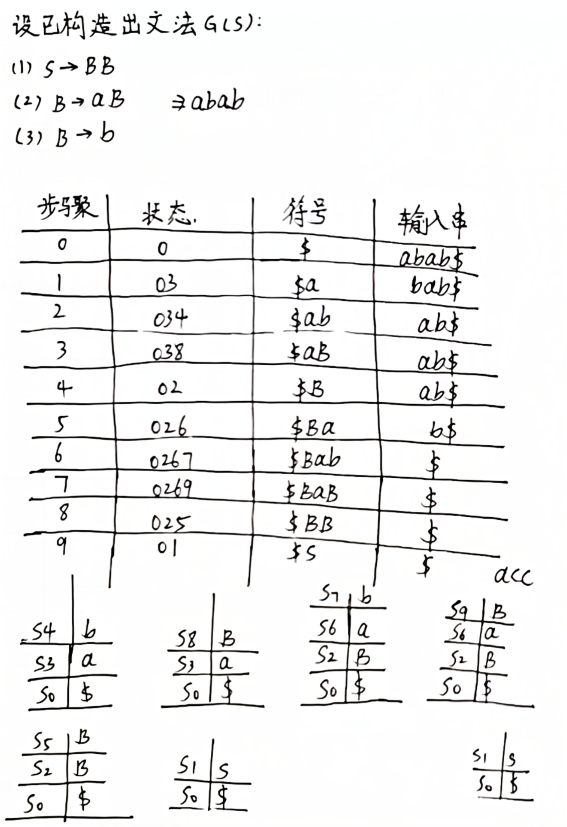 设已构造出文法G(S):
(1) S→BB
(2) B→aB ∋abab
(3) B→b
步骤 状态. 符号 输入串
0 0 $ abab$
1 03 $a bab$
2 034 $ab ab$
3 038 $aB ab$
4 02 $B ab$
5 026 $Ba b$
6 0267 $Bab $
7 0269 $BaB $
8 025 $BB $
9 01 $S $ acc
S4 b
S3 a
S0 $
S8 B
S3 a
S0 $
S7 b
S6 a
S2 B
S0 $
S9 B
S6 a
S2 B
S0 $
S5 B
S2 B
S0 $
S1 S
S0 $
S1 S
S0 $